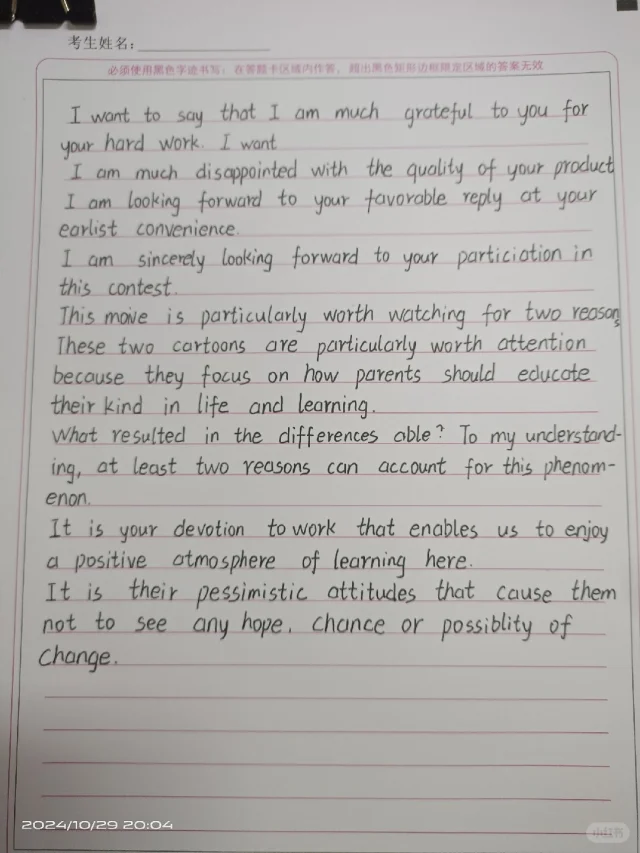 考生姓名:
必须使用黑色字迹书写;在答题卡区域内作答,超出黑色矩形边框限定区域的答案无效
I want to say that I am much grateful to you for
your hard work. I want
I am much disappointed with the quality of your product
I am looking forward to your favorable reply at your
earlist convenience.
I am sincerely looking forward to your particiation in
this contest.
This moive is particularly worth watching for two reasons
These two cartoons are particularly worth attention
because they focus on how parents should educate
their kind in life and learning.
What resulted in the differences able? To my understand-
ing, at least two reasons can account for this phenom-
enon.
It is your devotion to work that enables us to enjoy
a positive atmosphere of learning here.
It is their pessimistic attitudes that cause them
not to see any hope, chance or possiblity of
change.
2024/10/29 20:04
小红书